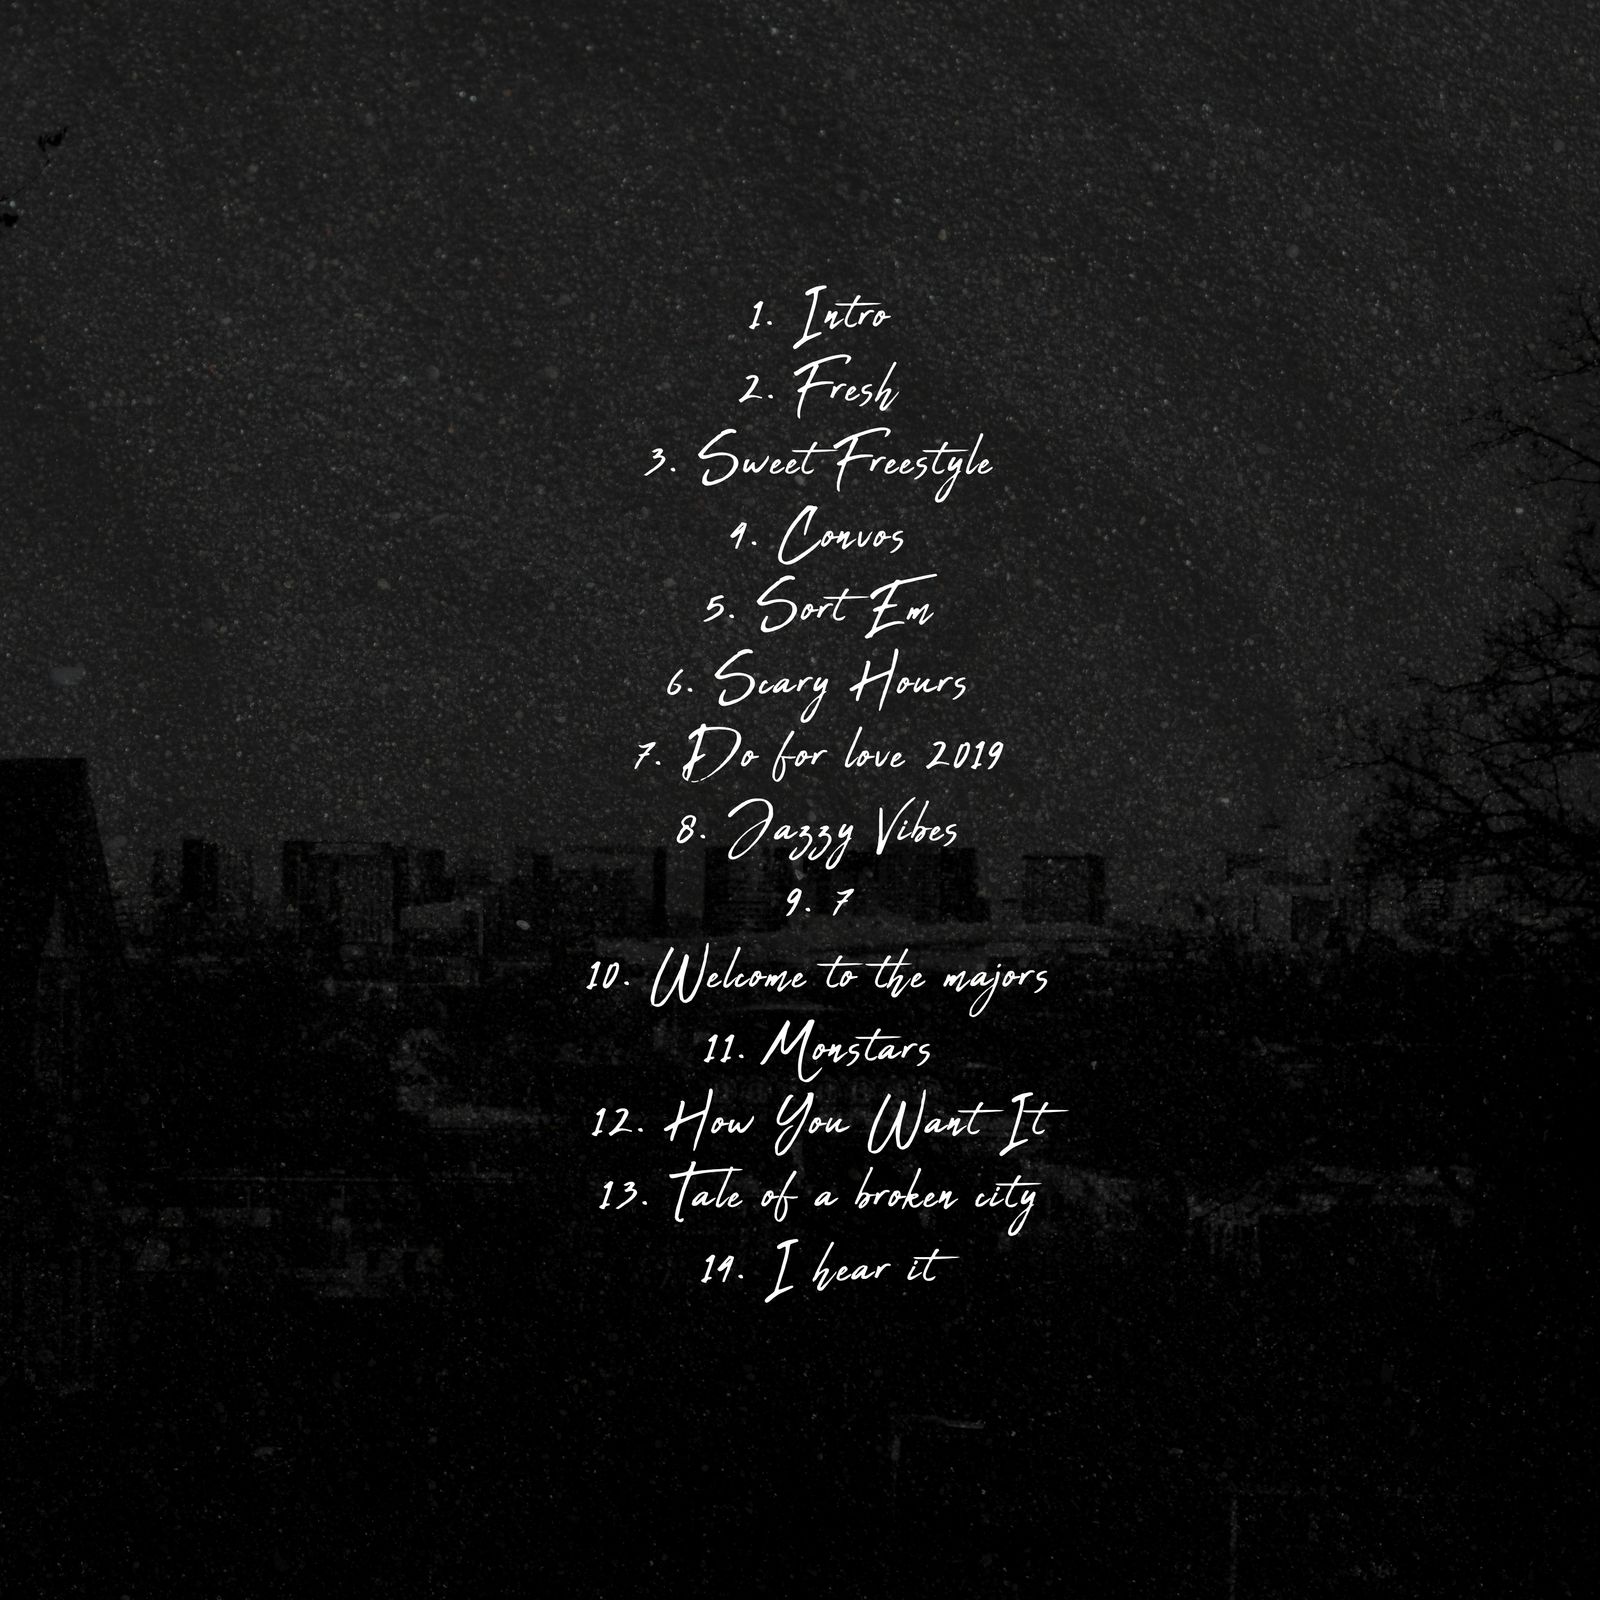 1. Intro
2. Fresh
3. Sweet Freestyle
4. Convos
5. Sort Em
6. Scary Hours
7. Do for love 2019
8. Jazzy Vibes
9. 7
10. Welcome to the majors
11. Monstars
12. How You Want It
13. Tale of a broken city
14. I hear it